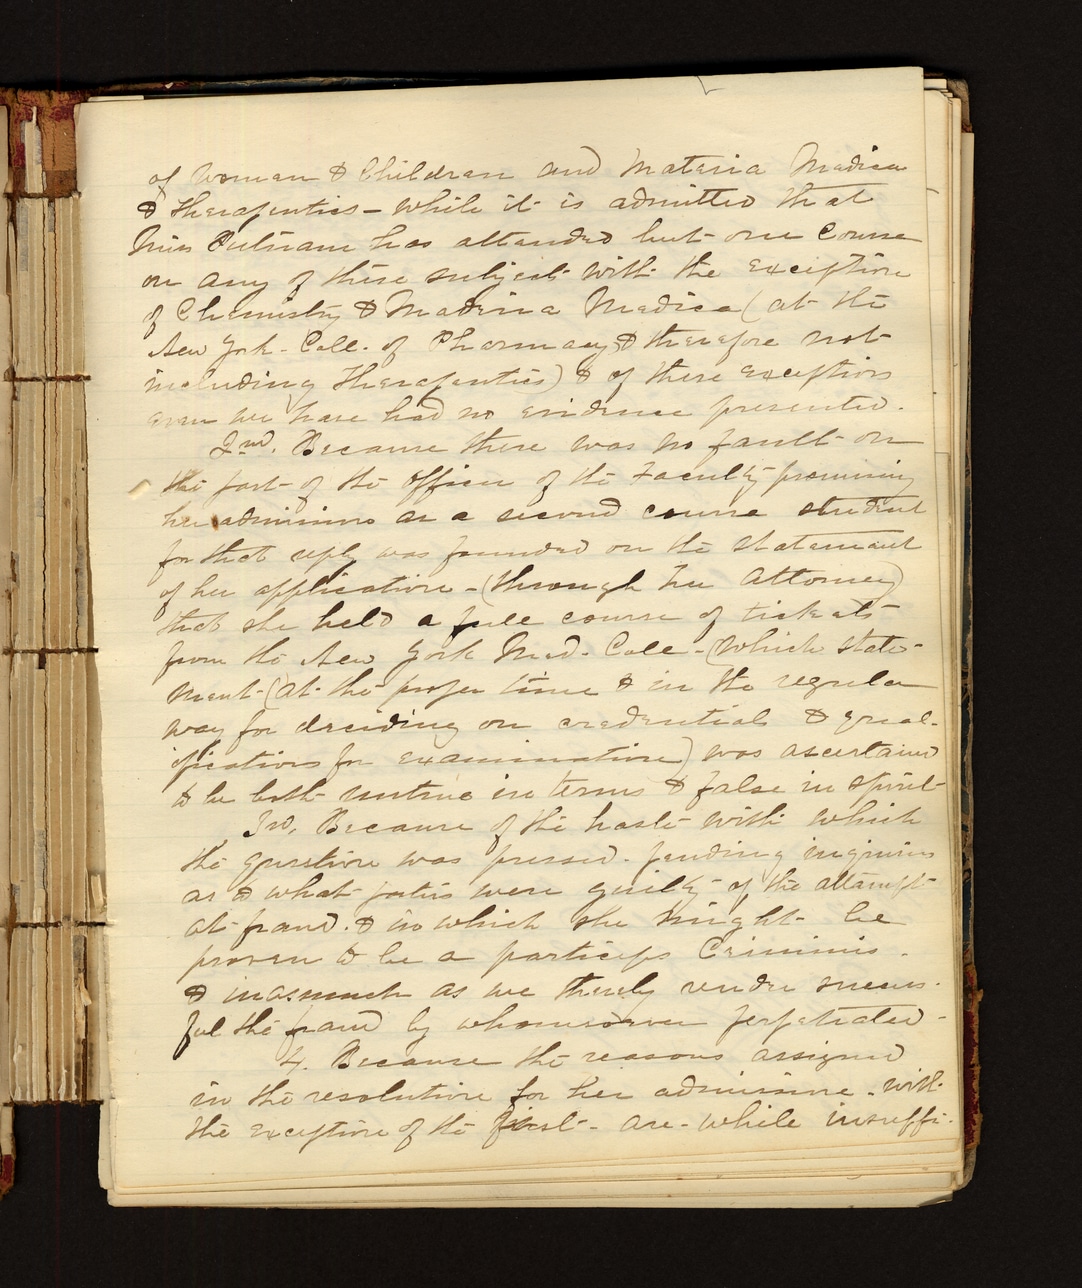 of Women & Children and Materia Medica
& Therapeutics – while it is admitted that
Miss Putnam has attended but one Course
on any of these subjects with the exception
of Chemistry & Materia Medica (at the
New York Coll. of Pharmacy & therefore not
including Therapeutics) & of these exceptions
even we have had no evidence presented.
2nd. Because there was no fault on
the part of the Officer of the Faculty promising
her admission as a second course student
for that reply was founded on the statement
of her application – (through her Attorney)
that she held a full course of tickets
from the New York Med. Coll – (which state-
ment (at the proper time & in the regular
way for deciding on credentials & qual-
ifications for examination) was ascertained
to be both untrue in terms & false in spirit
3rd, Because of the haste with which
the question was pressed. pending inquiries
as to what parties were guilty of the attempt
at fraud. & in which she might be
proven to be a particeps Criminis.
& inasmuch as we thereby render success-
ful the fraud by whomsoever perpetrated –
4. Because the reasons assigned
in the resolution for her admission. with
the exception of the first – are – while insuffi-